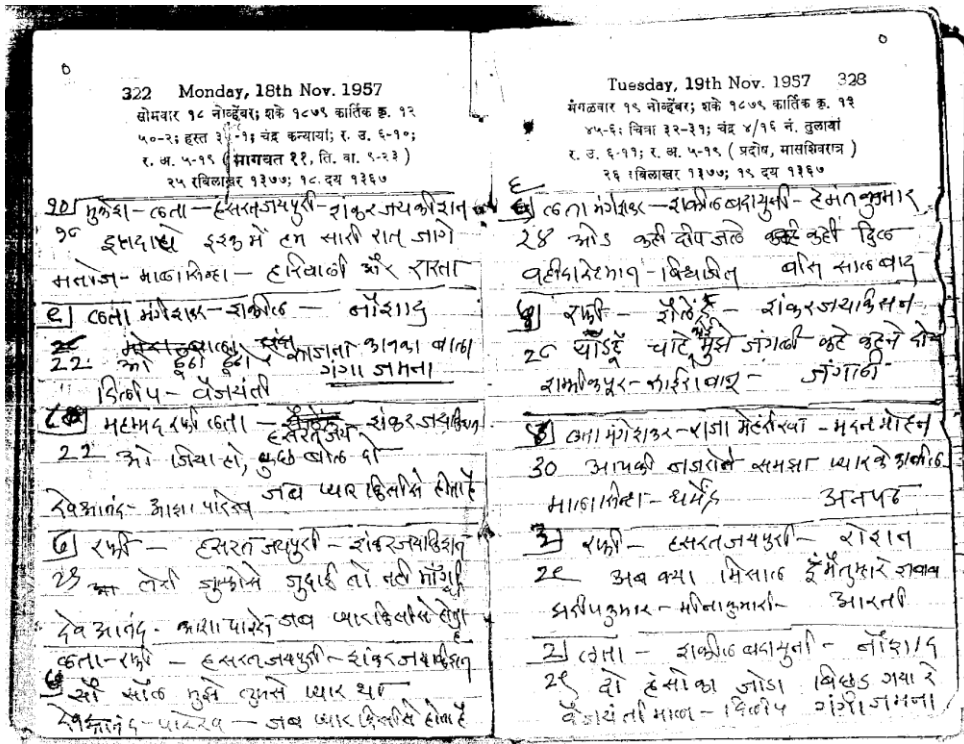 322 Monday, 18th Nov. 1957
सोमवार १८ नोव्हेंबर; शके १८७९ कार्तिक कृ. १२
५०-२; हस्त -१; चंद्र कन्यायां; र. उ. ६-१०;
र. अ. ५-१९ (भागवत ११, ति. वा. ९-२३)
२५ रबिलाखर १३७७; १८ दय १३६७
१०) मुकेश - लता - हसरत जयपुरी - शंकर जयकीशन
इब्तदाये इश्क में हम सारी रात जागे
मनोज - माला सिन्हा - हरियाली और रास्ता
९) लता मंगेशकर - शकील - नौशाद
२२ ओ ढूंढो ढूंढो रे साजना कानका बाला
दिलीप - वैजयंती गंगा जमना
८) महम्मद रफी लता - हसरत जय - शंकर जयकिशन
२२ ओ जिया हो, कुछ बोल दो
देवआनंद - आशा पारेख जब प्यार किसीसे होता है
७) रफी - हसरत जयपुरी - शंकर जयकिशन
२३ तेरी जुल्फोसे जुदाई तो नही माँगी
देव आनंद - आशा पारेख जब प्यार किसीसे होता है
लता - रफी - हसरत जयपुरी - शंकर जयकिशन
सौ साल मुझे तुमसे प्यार था
देवआनंद - पारेख - जब प्यार किसीसे होता है
Tuesday, 19th Nov. 1957 323
मंगळवार १९ नोव्हेंबर; शके १८७९ कार्तिक कृ. १३
४५-६; चित्रा ३२-३१; चंद्र ४/१६ नं. तुलायां
र. उ. ६-११; र. अ. ५-१९ (प्रदोष, मासशिवरात्र)
२६ रबिलाखर १३७७; १९ दय १३६७
६) लता मंगेशकर - शकील बदायुनी - हेमंत कुमार
२४ कही दीप जले कही दिल
वहीदा रेहमान - विश्वजित बीस साल बाद
५) रफी - शैलेंद्र - शंकर जयकिसन
२८ चाहे कोई मुझे जंगली कहे कहने दो
शम्मीकपूर - सायरा बानू - जंगली
४) लता मंगेशकर - राजा मेहंदी खाँ - मदन मोहन
30 आपकी नजरोने समझा प्यारके काबील
माला सिन्हा - धर्मेंद्र अनपढ
३) रफी - हसरत जयपुरी - रोशन
२९ अब क्या मिसाल दूँ मै तुम्हारे शबाब
प्रदीपकुमार - मीनाकुमारी - आरती
२) लता - शकील बदायुनी - नौशाद
२९ दो हंसो का जोडा बिछुड गयो रे
वैजयंतीमाला - दिलीप गंगा जमना